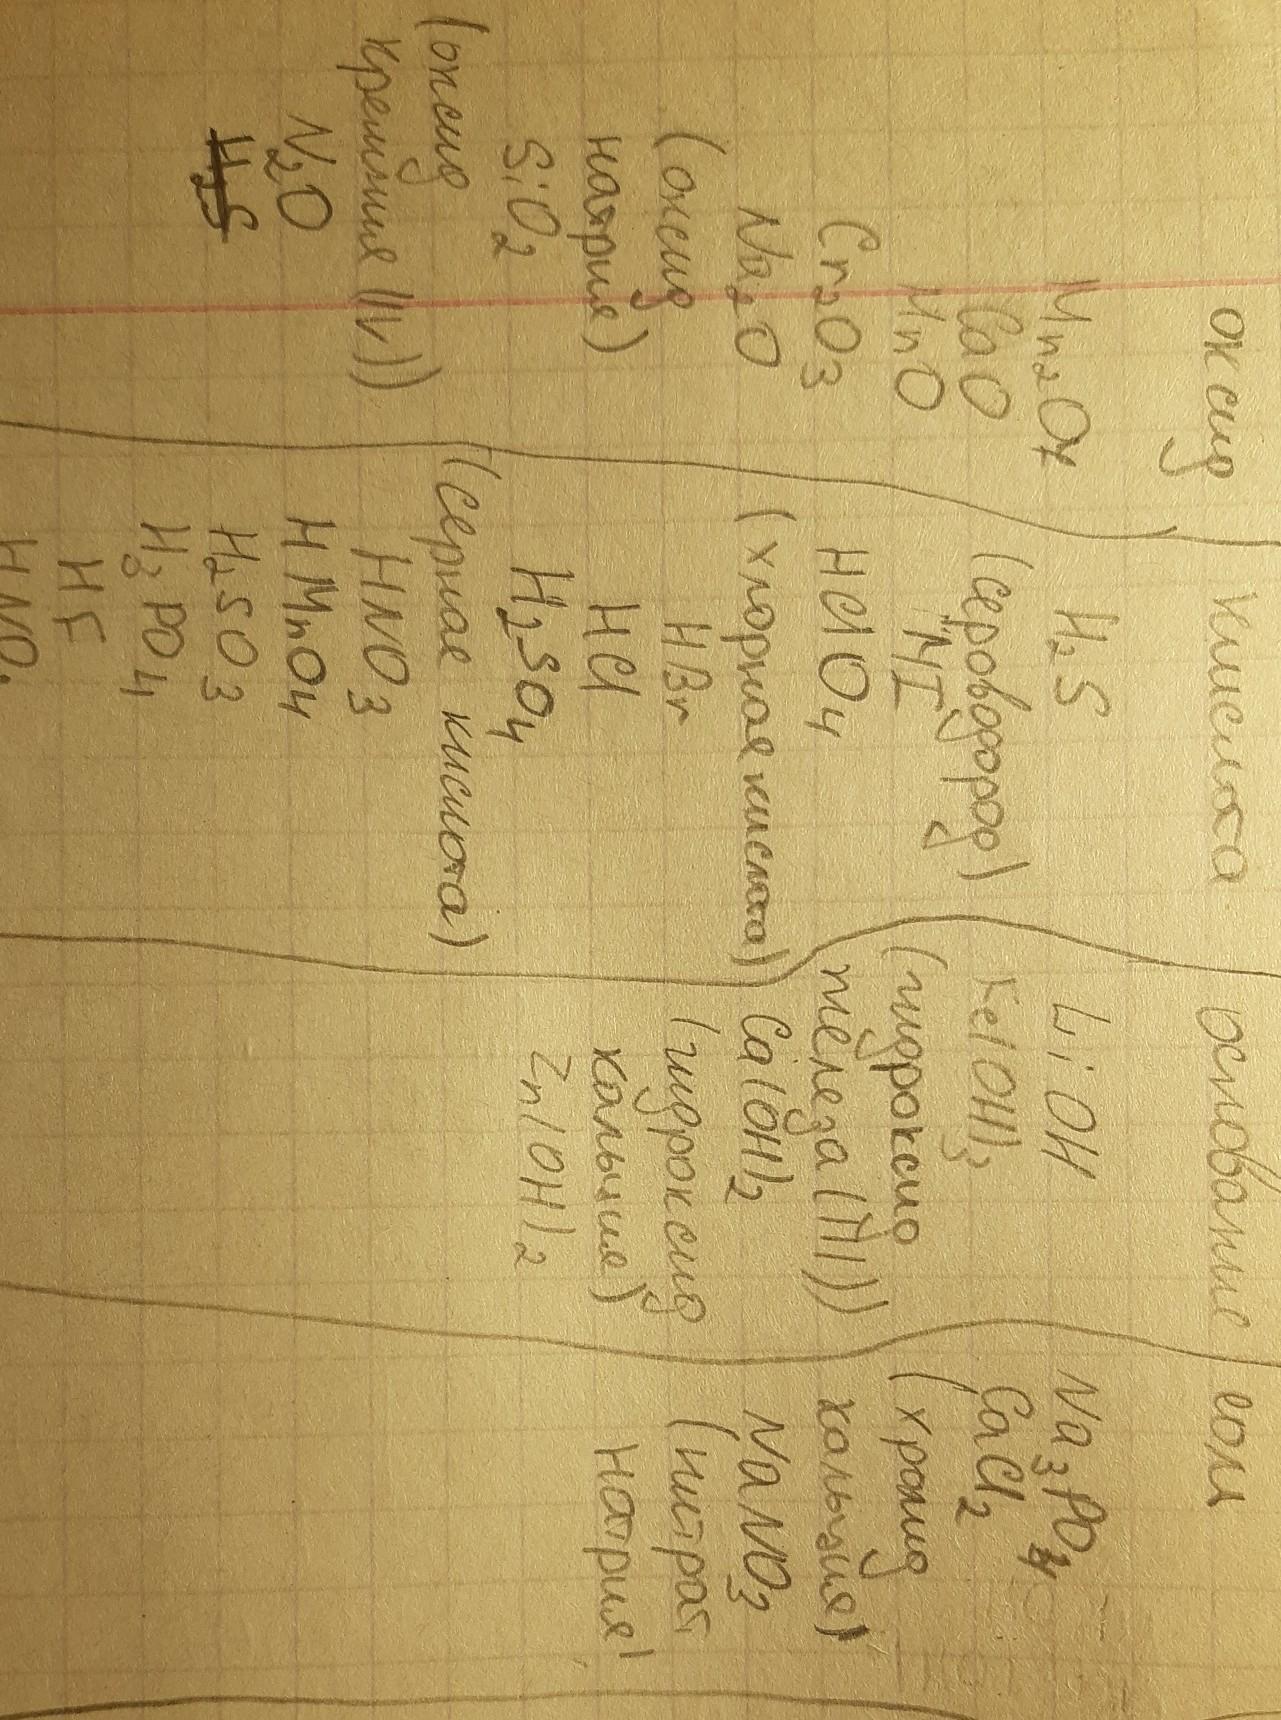 оксид
Mn2O7
CaO
MnO
Cr2O3
Na2O
(оксид
натрия)
SiO2
(оксид
кремния (IV))
N2O
H2S
кислота
H2S
(сероводород)
HI
HClO4
(хлорная кислота)
HBr
HCl
H2SO4
(серная кислота)
HNO3
HMnO4
H2SO3
H3PO4
HF
основание
LiOH
Fe(OH)3
(гидроксид
железа (III))
Ca(OH)2
(гидроксид
кальция)
Zn(OH)2
соли
Na3PO4
CaCl2
(хромид
кальция)
NaNO3
(нитрат
натрия)